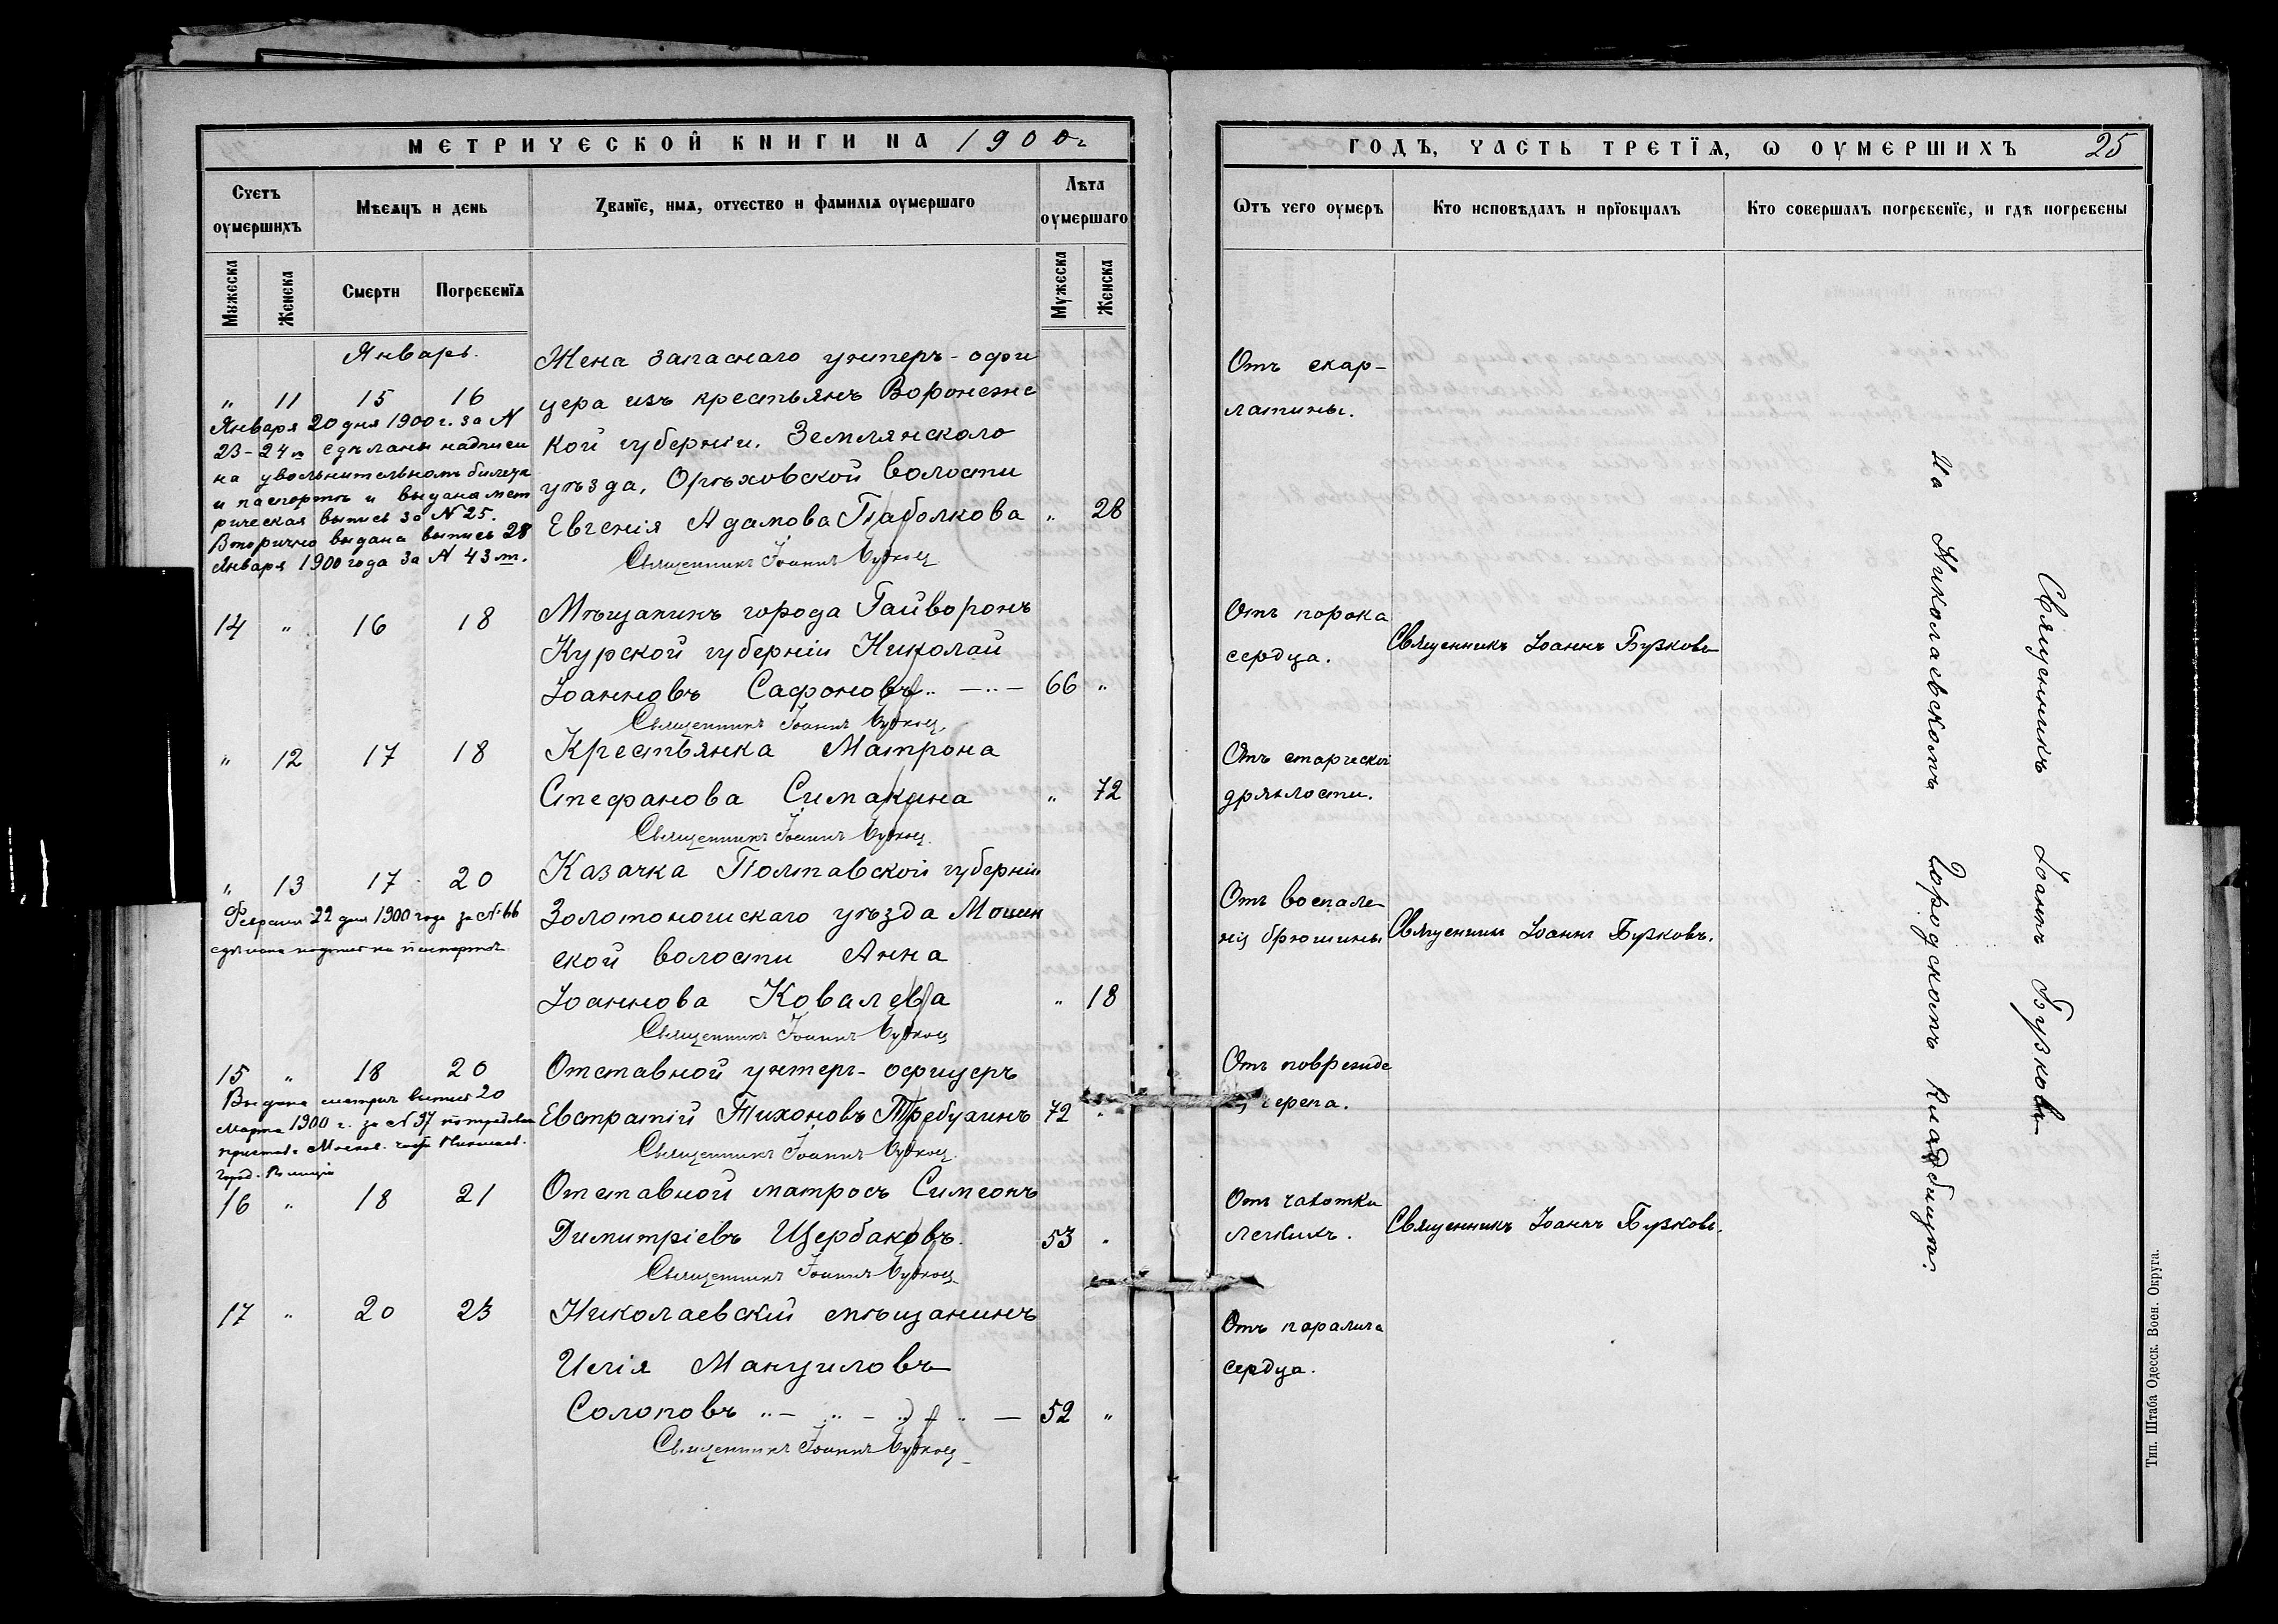 МЕТРИЧЕСКОЙ КНИГИ НА 1900 г.
Счетъ оумершихъ
Мѣсяцъ и день
Званїе, имя, отчество и фамилїя оумершаго
Лѣта оумершаго
Мужеска
Женска
Смерти
Погребенїя
Мужеска
Женска
Январь.
" 11 15 16
Января 20 дня 1900 г. за N
23-24 м сдѣланы надписи
на увольнительномъ билетѣ
и паспортѣ и выдана мет
рическая выпись за N 25.
Вторично выдана выпись 28
Января 1900 года за N 43 м.
Жена запаснаго унтеръ-офи
цера изъ крестьянъ Воронежс
кой губерніи, Землянскаго
уѣзда, Орѣховской волости
Евгенія Адамова Таболкова " 28
Священникъ Іоаннъ
14 " 16 18
Мѣщанинъ города Гайворонъ
Курской губерніи Николай
Іоанновъ Сафоновъ 66 "
Священникъ Іоаннъ
" 12 17 18
Крестьянка Матрона
Стефанова Симакина " 72
Священникъ Іоаннъ
" 13 17 20
Февраля 22 дня 1900 года за N 66
сдѣлана надпись на паспортѣ
Казачка Полтавской губерніи
Золотоношскаго уѣзда Мошен
ской волости Анна
Іоаннова Ковалева " 18
Священникъ Іоаннъ
15 " 18 20
Выдана метрич. выпись 20
Марта 1900 г. за N 97 по требован
пристава Москов. части Николаев.
город. полиціи
Отставной унтеръ-офицеръ
Евстратій Тихоновъ Требухинъ 72 "
Священникъ Іоаннъ
16 " 18 21
Отставной матросъ Симеонъ
Димитріевъ Щербаковъ. 53 "
Священникъ Іоаннъ
17 " 20 23
Николаевскій мѣщанинъ
Илія Мануиловъ
Солоповъ 52 "
Священникъ Іоаннъ
ГОДЪ, ЧАСТЬ ТРЕТЇЯ, Ѡ ОУМЕРШИХЪ 25
Ѿтъ чего оумеръ
Кто исповѣдалъ и прїобщалъ
Кто совершалъ погребенїе, и гдѣ погребены
Отъ скар-
латины.
Отъ порока
сердца.
Священникъ Іоаннъ Бузковъ
Отъ старческой
дряхлости.
Отъ воспале-
нія брюшины
Священникъ Іоаннъ Бузковъ.
Отъ поврежде
черепа.
Отъ чахотки
легкихъ.
Священникъ Іоаннъ Бузковъ.
Отъ паралича
сердца.
Священникъ Іоаннъ Бузковъ
На Николаевскомъ Городскомъ Кладбищѣ.
Тип. Штаба Одесск. Воен. Округа.